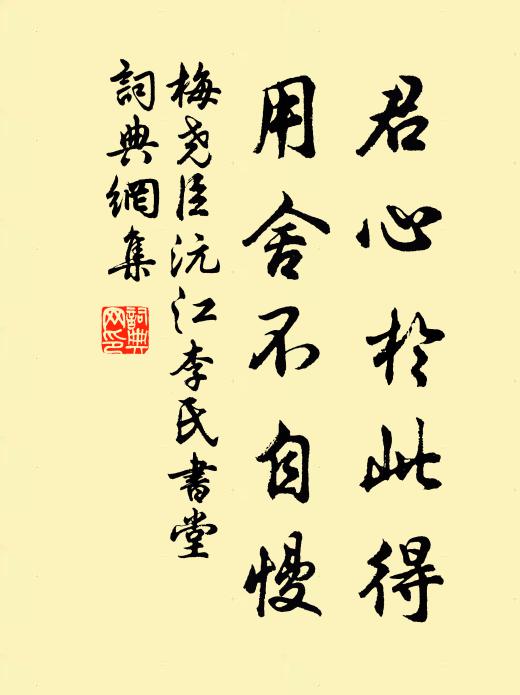 君心於此得
用舍不自慢
梅尧臣沅江李氏書堂
詞典網集
詞典
网印